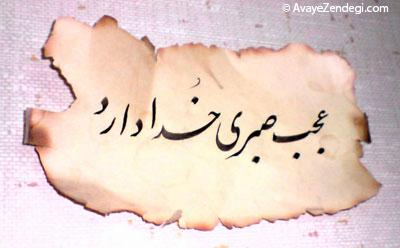 © AvayeZendegi.com
عجب صبری خُدا دارد